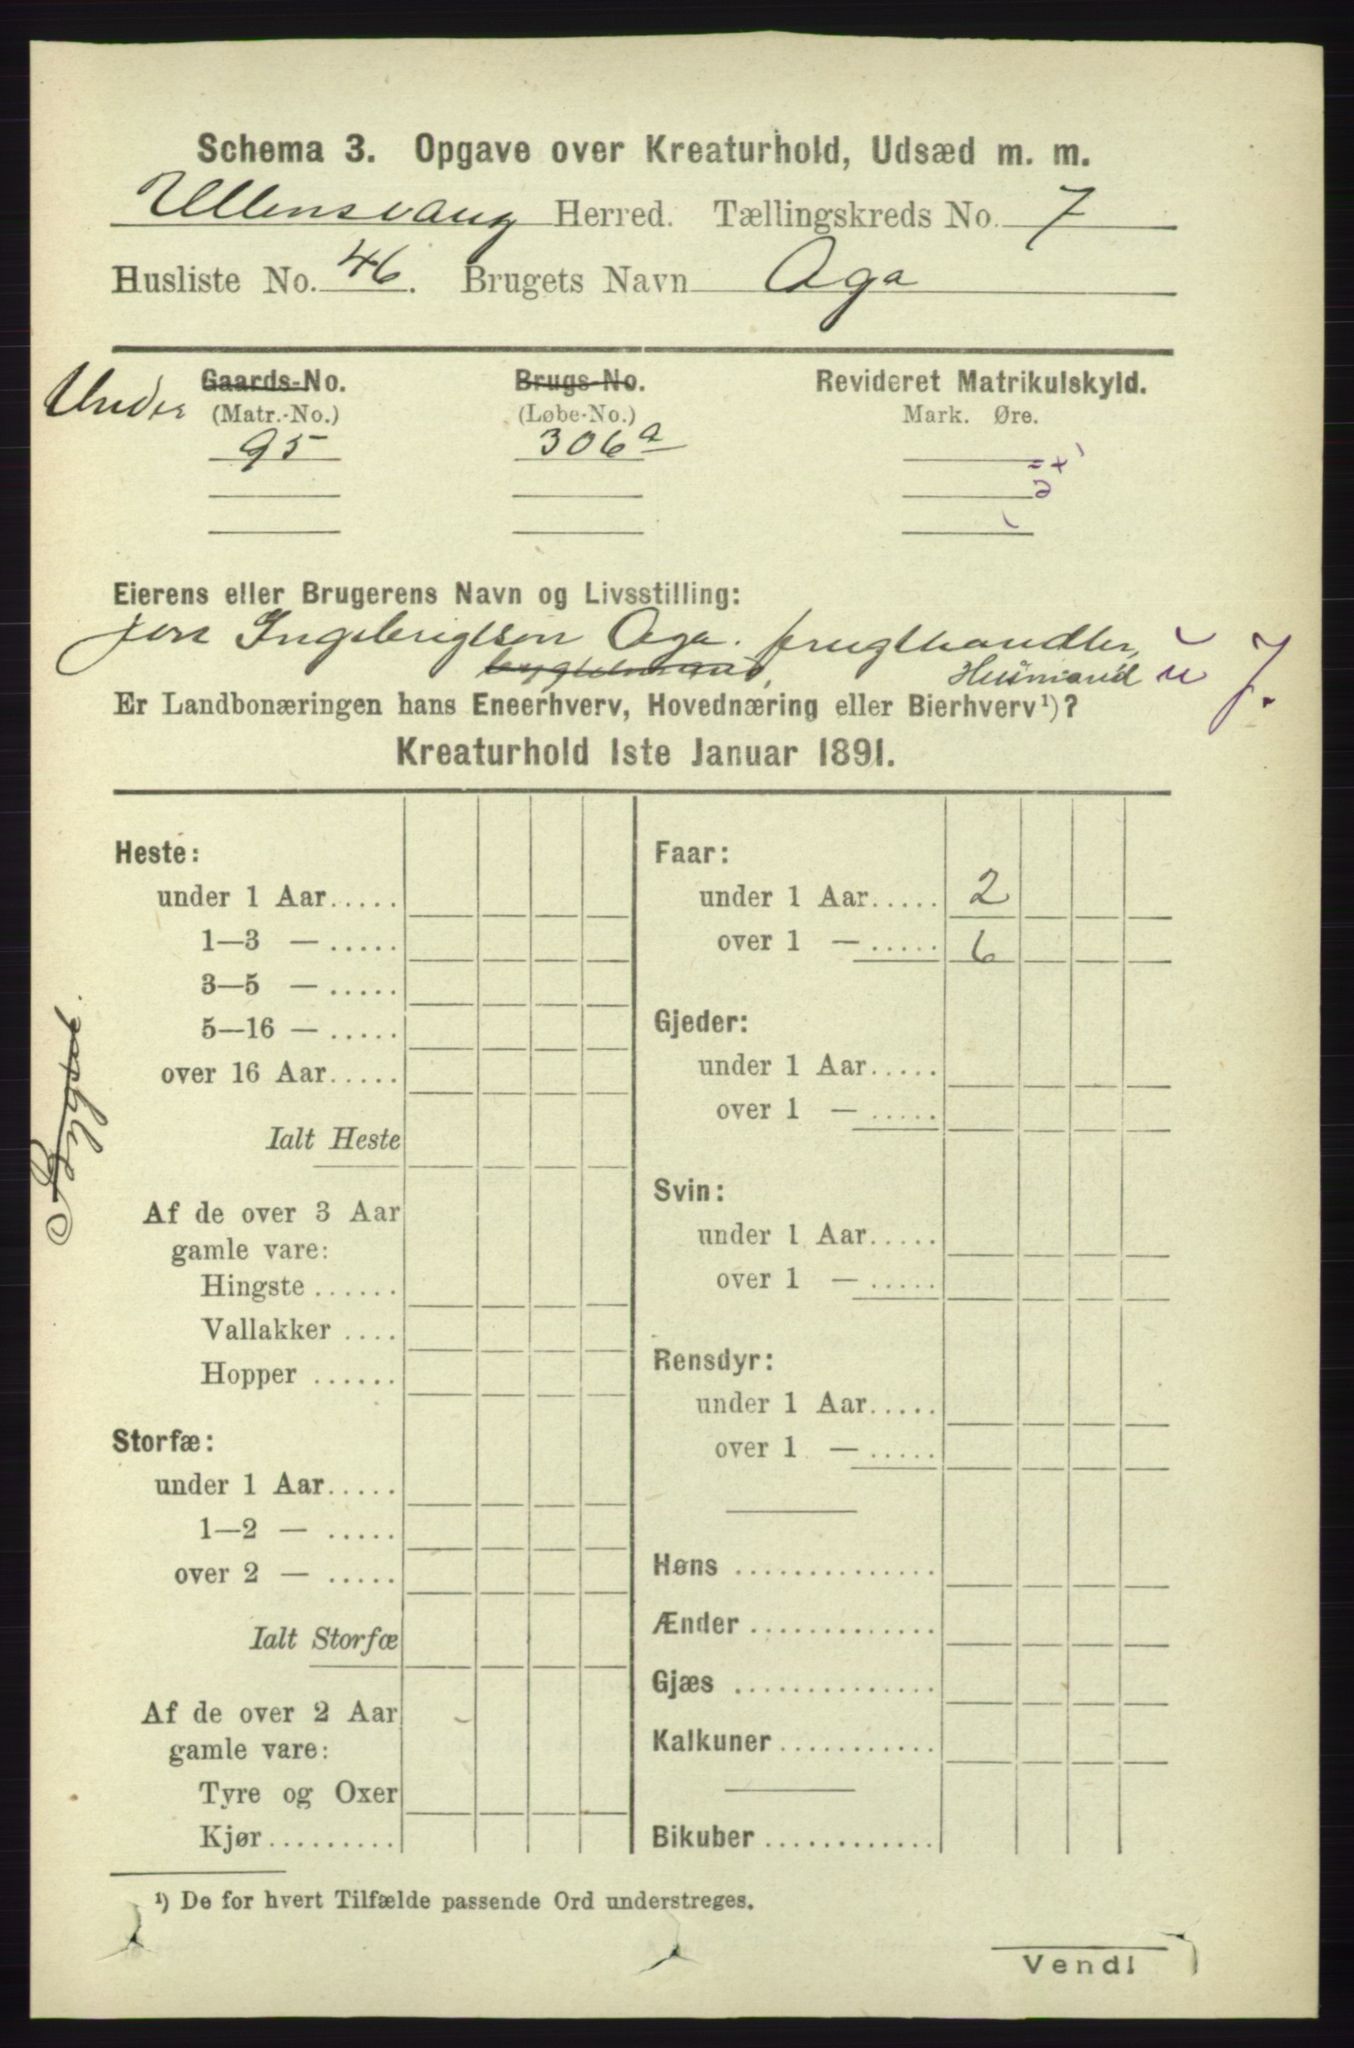 Schema 3. Opgave over Kreaturhold, Udsæd m. m.
Ullensvang Herred. Tællingskreds No. 7
Husliste No. 46. Brugets Navn Aga
Under Gaards-No. Brugs-No. Revideret Matrikulskyld.
(Matr.-No.) (Løbe-No.) Mark. Øre.
95 306a
Eierens eller Brugerens Navn og Livsstilling:
Jon Ingebrigtson Aga. frugthandler,
Husmand
Er Landbonæringen hans Eneerhverv, Hovednæring eller Bierhverv¹)?
Kreaturhold 1ste Januar 1891.
Heste:
under 1 Aar.....
1—3 — .....
3—5 — .....
5—16 — .....
over 16 Aar.....
Ialt Heste
Af de over 3 Aar
gamle vare:
Hingste ......
Vallakker ....
Hopper ......
Storfæ:
under 1 Aar.....
1—2 — .....
over 2 — .....
Ialt Storfæ
Af de over 2 Aar
gamle vare:
Tyre og Oxer
Kjør.........
Faar:
under 1 Aar..... 2
over 1 — ..... 6
Gjeder:
under 1 Aar.....
over 1 — .....
Svin:
under 1 Aar.....
over 1 — .....
Rensdyr:
under 1 Aar.....
over 1 — .....
Høns ..............
Ænder .............
Gjæs ..............
Kalkuner...........
Bikuber ............
¹) De for hvert Tilfælde passende Ord understreges.
Vend!